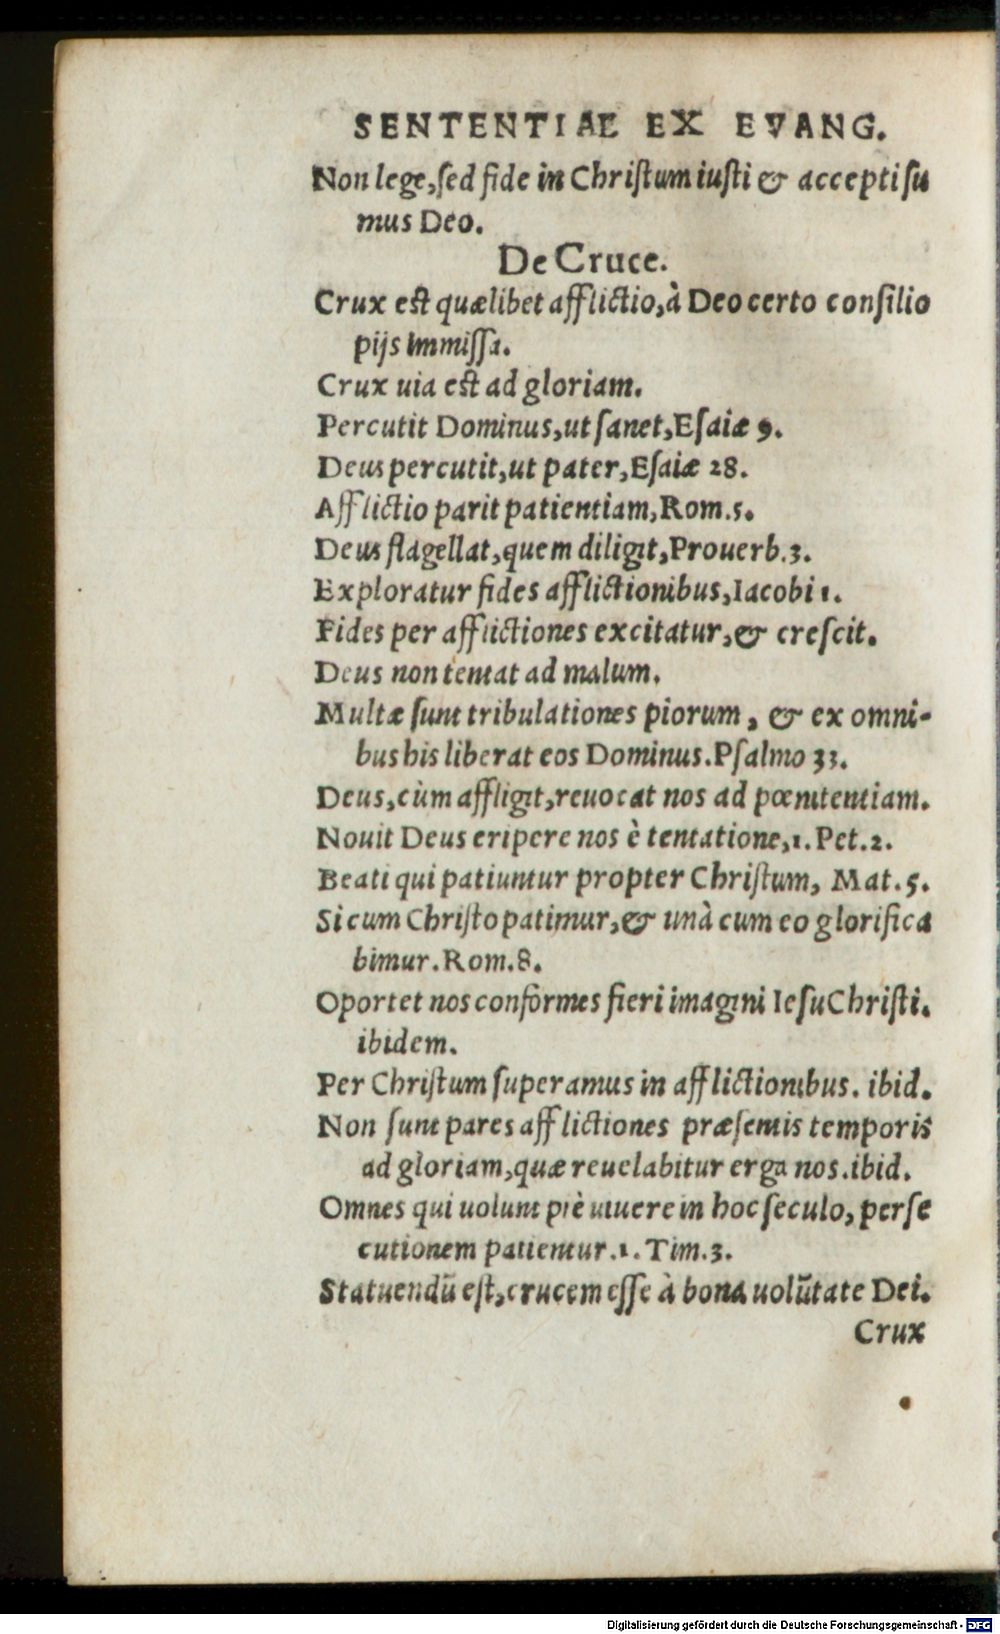 SENTENTIAE EX EVANG.
Non lege, sed fide in Christum iusti & accepti su
mus Deo.
De Cruce.
Crux est quælibet afflictio, à Deo certo consilio
pijs immissa.
Crux uia est ad gloriam.
Percutit Dominus, ut sanet, Esaiæ 9.
Deus percutit, ut pater, Esaiæ 28.
Afflictio parit patientiam, Rom.5.
Deus flagellat, quem diligit, Prouerb.3.
Exploratur fides afflictionibus, Iacobi 1.
Fides per afflictiones excitatur, & crescit.
Deus non tentat ad malum.
Multæ sunt tribulationes piorum, & ex omni-
bus his liberat eos Dominus. Psalmo 33.
Deus, cùm affligit, reuocat nos ad pœnitentiam.
Nouit Deus eripere nos è tentatione, 1. Pet.2.
Beati qui patiuntur propter Christum, Mat.5.
Si cum Christo patimur, & unà cum eo glorifica
bimur. Rom.8.
Oportet nos conformes fieri imagini Iesu Christi.
ibidem.
Per Christum superamus in afflictionibus. ibid.
Non sunt pares afflictiones præsentis temporis
ad gloriam, quæ reuelabitur erga nos. ibid.
Omnes qui uolunt piè uiuere in hoc seculo, perse
cutionem patientur. 1. Tim.3.
Statuendū est, crucem esse à bona uolūtate Dei.
Crux
Digitalisierung gefördert durch die Deutsche Forschungsgemeinschaft - DFG